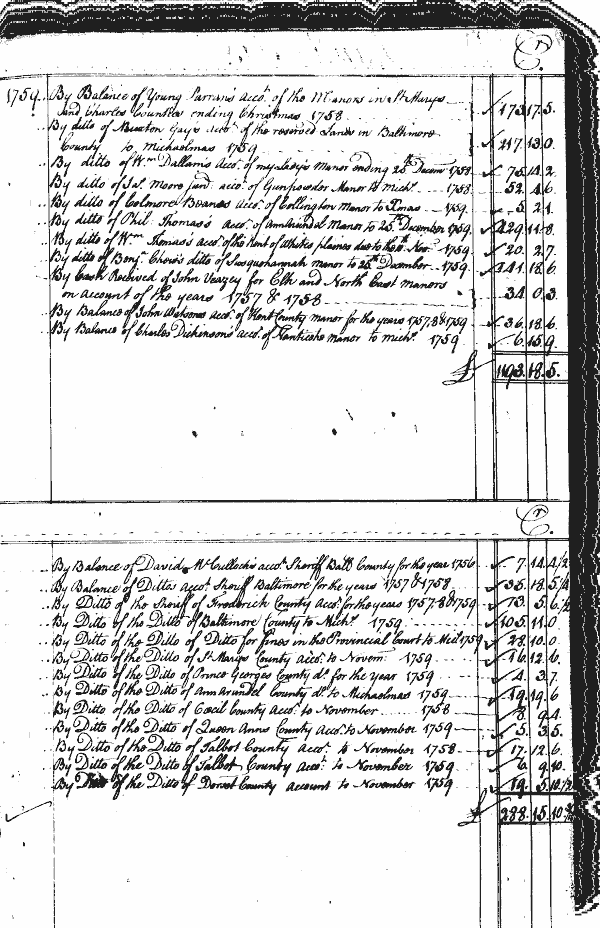 Cr.
1759. By Balance of Young Parran's Acco.t of the Manors in St Marys
and Charles Counties ending Christmas 1758 173.17.5.
By ditto of Newton Gay's Acco.t of the reserved Lands in Baltimore
County to Michaelmas 1759 217.13.0
By ditto of Wm Dallam's Acco.t of my Lady's Manor ending 25th Decem.r 1758 75.14.2.
By ditto of Ja.s Moore jun.r acco.t of Gunpowder Manor to Mich.s 1758 52.4.6.
By ditto of Colmore Beanes Acco.t of Collington Manor to Xmas 1759. 5.2.1.
By ditto of Phil. Thomas's Acco.t of AnnArundel Manor to 25th December 1759. 229.11.8.
By ditto of Wm Thomas's Acco.t of the Rent of plaines due to the Nov.r 1759 20.2.7.
By ditto of Benj.n ditto of Susquehannah manor to 25th December 1759. 241.18.6.
By Cash Received of John Veazey for Elk and North East manors
on account of the years 1757 & 1758 34.0.3.
By Balance of John Watsons acco.t of Kent County manor for the years 1757.8&1759 36.18.6.
By Balance of Charles Dickinson's acco.t of Nanticoke manor to Mich.s 1759 6.15.9.
£ 1193.18.5.
Cr.
By Balance of David McCulloch's acco.t Sheriff Balt County for the year 1756 7.14.4½
By Balance of Dittos Acco.t Sheriff Baltimore for the years 1757 & 1758 35.18.5½
By Ditto of the Sheriff of Frederick County Acco.t for the years 1757.8&1759 73.5.6½
By Ditto of the Ditto of Baltimore County to Mich.s 1759. 105.11.0.
By Ditto of the Ditto of Ditto for fines in the Provincial Court to Mich.s 1759 28.10.0.
By Ditto of the Ditto of St Marys County acco.t to Novem.r 1759 16.12.6.
By Ditto of the Ditto of Prince Georges County d.o for the year 1759 4.3.7.
By Ditto of the Ditto of AnnArundel County d.o to Michaelmas 1759 19.19.6
By Ditto of the Ditto of Cæcil County Acco.t to November 1758 8.9.4.
By Ditto of the Ditto of Queen Anns County Acco.t to November 1759 5.3.5.
By Ditto of the Ditto of Talbot County Acco.t to November 1758 17.12.6.
By Ditto of the Ditto of Talbot County acco.t to November 1759 6.9.10.
By Ditto of the Ditto of Dorset County account to November 1759 19.5.10½
£ 288.15.10